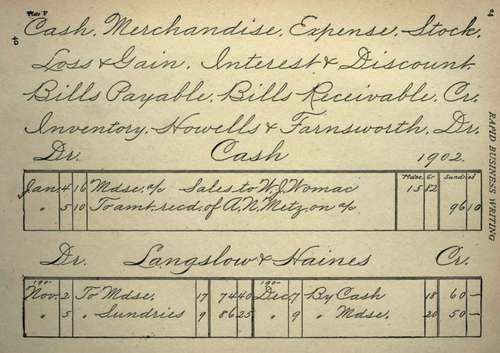 Plate V
2
Cash, Merchandise, Expense, Stock,
Loss & Gain, Interest & Discount
Bills Payable, Bills Receivable, Cr.
Inventory, Howells & Farnsworth, Dr.
Dr. Cash 1902.
Mdse. Cr Sundries
Jan 4 16 Mdse. a/c Sales to W. J. Womac 15 12
" 5 10 To amt. recd. of A. N. Metz, on a/c 96 10
Dr. Langslow & Haines Cr.
Nov. 2 To Mdse. 17 74 40 Dec. 7 By Cash 18 60 —
" 5 " Sundries 9 86 25 " 9 " Mdse. 20 50 —
RAPID BUSINESS WRITING